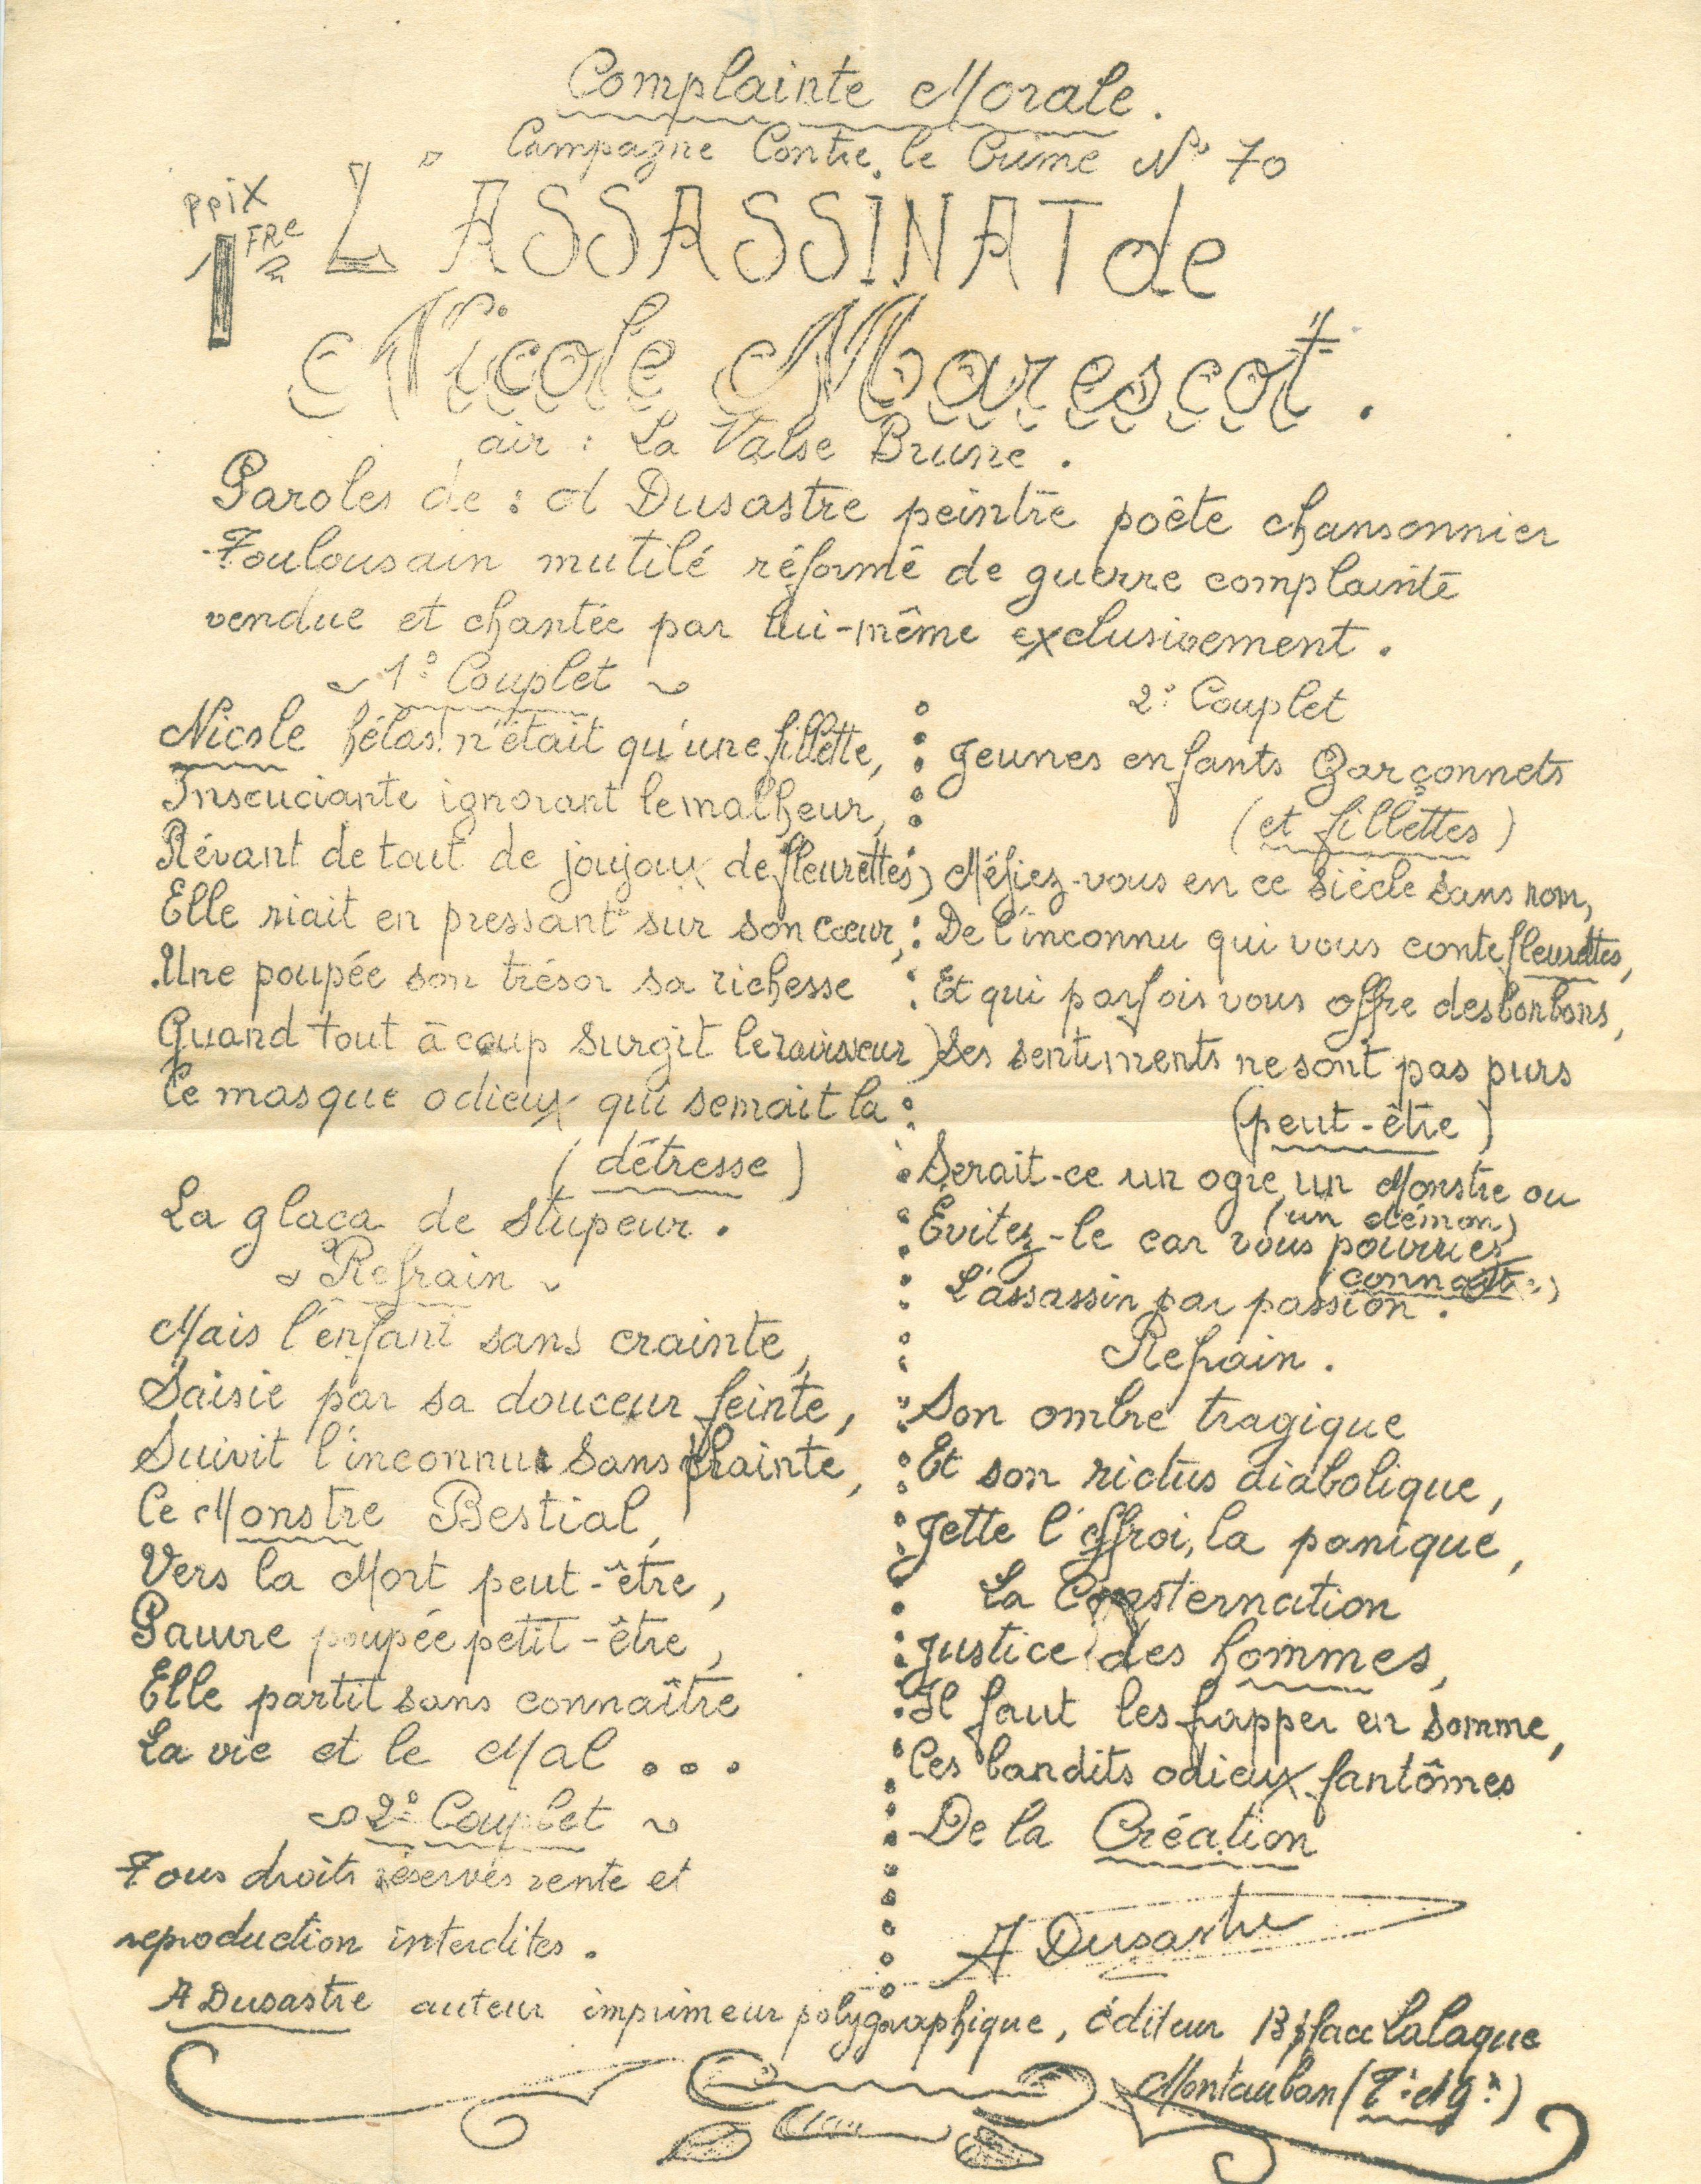 Complainte Morale.
Campagne Contre le Crime N° 70
ppix
1 FRc
L'ASSASSINAT de
Nicole Marescot.
air : La Valse Brune.
Paroles de : A Dusastre peintre poête chansonnier
Toulousain mutilé réformé de guerre complainte
vendue et chantée par lui-même exclusivement.
1° Couplet
Nicole hélas! n'était qu'une fillette,
Insouciante ignorant le malheur,
Rêvant de tout de joujoux de fleurettes,
Elle riait en pressant sur son cœur,
Une poupée son trésor sa richesse
Quand tout à coup surgit le ravisseur
Ce masque odieux qui semait la
(détresse)
La glaça de stupeur.
Refrain
Mais l'enfant sans crainte,
Saisie par sa douceur feinte,
Suivit l'inconnu sans plainte,
Ce Monstre Bestial,
Vers la Mort peut-être,
Pauvre poupée petit-être,
Elle partit sans connaître
La vie et le Mal...
2° Couplet
Tous droits réservés vente et
reproduction interdites.
2° Couplet
Jeunes enfants Garçonnets
(et fillettes)
Méfiez-vous en ce siècle sans nom,
De l'inconnu qui vous conte fleurettes,
Et qui parfois vous offre des bonbons,
Ses sentiments ne sont pas purs
(peut-être)
Serait-ce un ogre, un Monstre ou
(un démon)
Évitez-le car vous pourriez
(connaît:)
L'assassin par passion.
Refrain.
Son ombre tragique
Et son rictus diabolique,
Jette l'effroi, la panique,
La Consternation
Justice des hommes,
Il faut les frapper en somme,
Ces bandits odieux fantômes
De la Création
A Dusastre
A Dusastre auteur imprimeur polygraphique, éditeur 13 place Lalaque
Montauban (T. et G.)